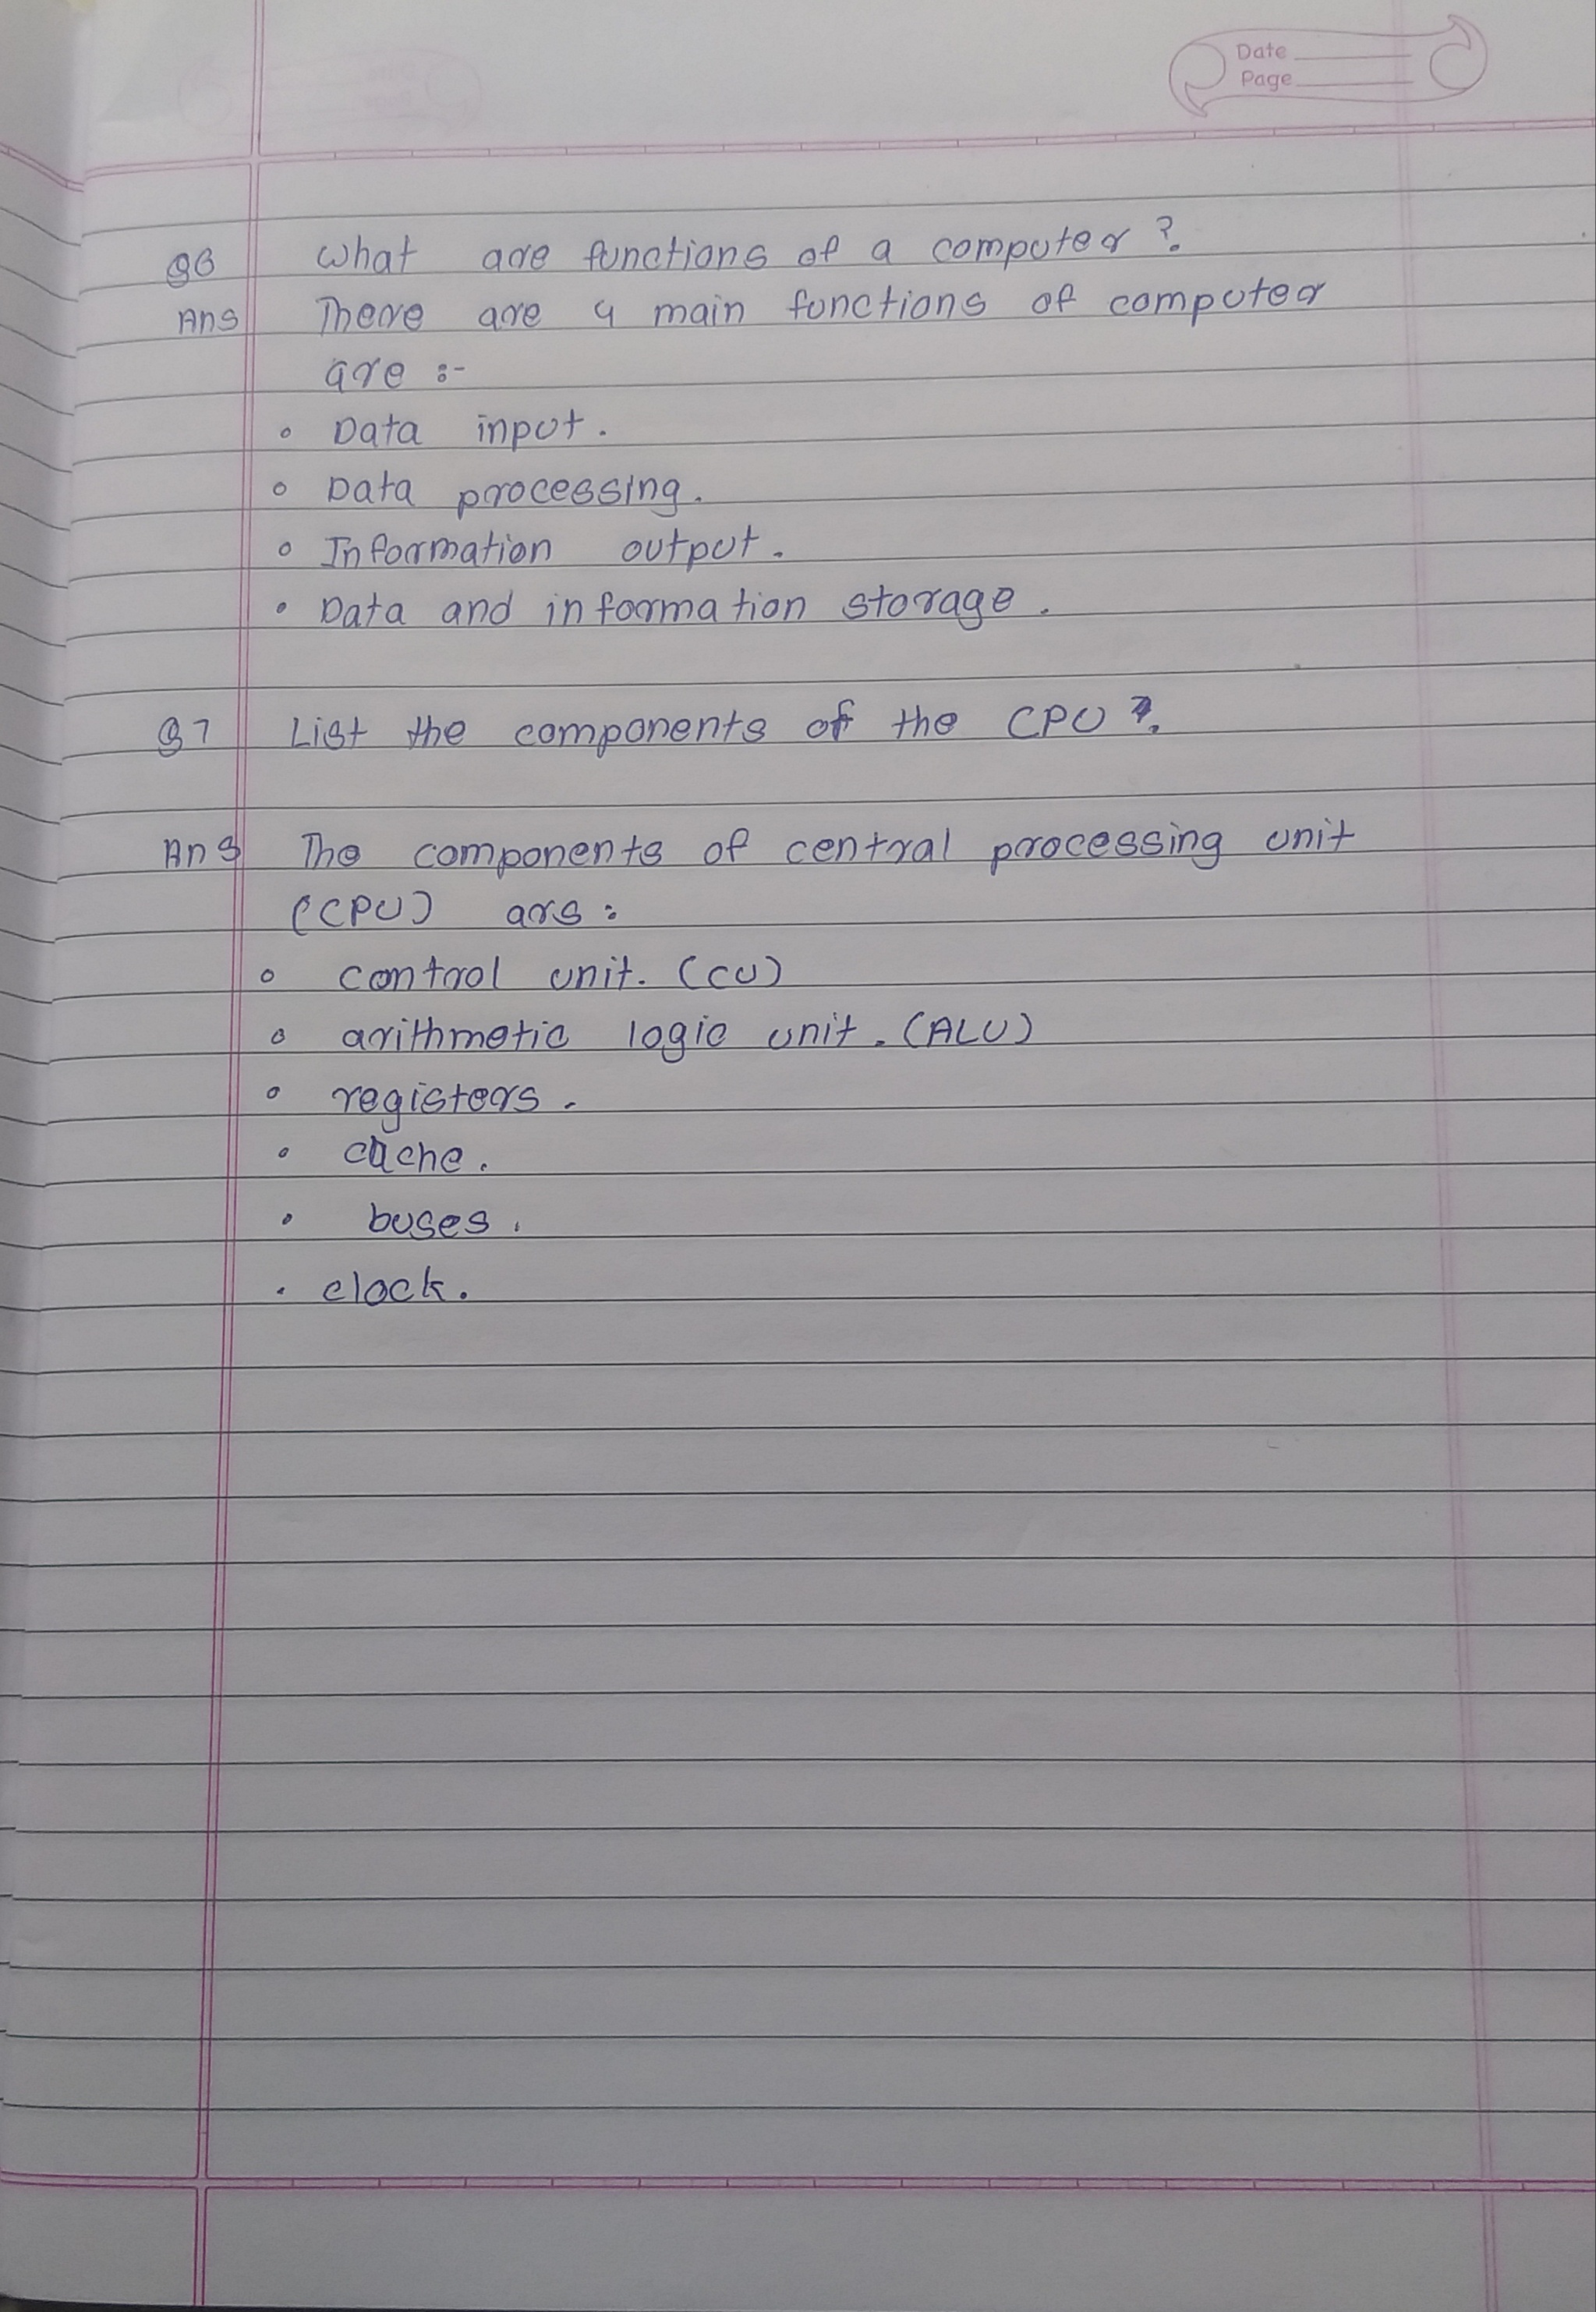 Date
Page
Q6 What are functions of a computer ?
Ans There are 4 main functions of computer
are :-
• Data input.
• Data processing.
• Information output.
• Data and information storage.
Q7 List the components of the CPU ?
Ans The components of central processing unit
(CPU) ars :
• control unit. (CU)
• arithmetic logic unit. (ALU)
• registers.
• cache.
• buses.
• clock.